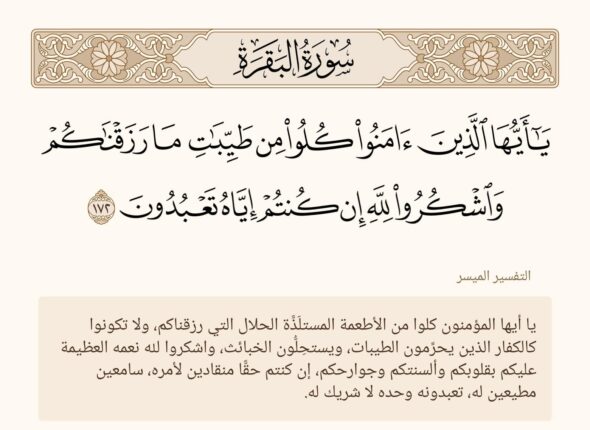 سُورَةُ البَقَرَةِ
يَٰٓأَيُّهَا ٱلَّذِينَ ءَامَنُوا۟ كُلُوا۟ مِن طَيِّبَٰتِ مَا رَزَقْنَٰكُمْ
وَٱشْكُرُوا۟ لِلَّهِ إِن كُنتُمْ إِيَّاهُ تَعْبُدُونَ ١٧٢
التفسير الميسر
يا أيها المؤمنون كلوا من الأطعمة المستلَذَّة الحلال التي رزقناكم، ولا تكونوا
كالكفار الذين يحرِّمون الطيبات، ويستحِلُّون الخبائث، واشكروا لله نعمه العظيمة
عليكم بقلوبكم وألسنتكم وجوارحكم، إن كنتم حقًّا منقادين لأمره، سامعين
مطيعين له، تعبدونه وحده لا شريك له.